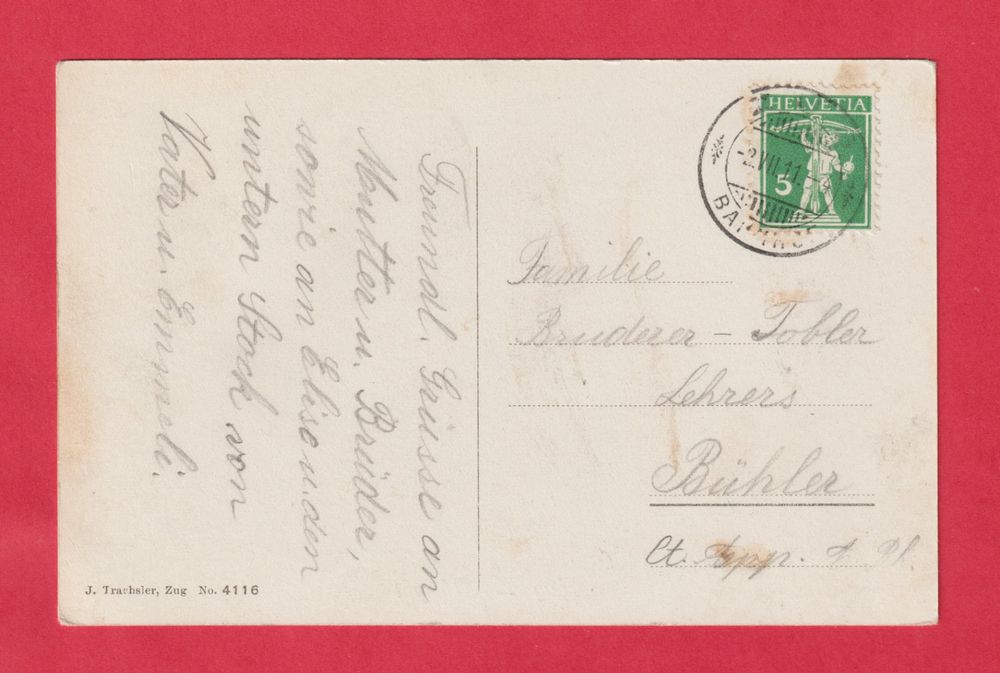 Freundl. Grüsse an
Mutter u. Brüder,
sowie an Elise u. den
untern Stock von
Vater u. Emmeli.
J. Trachsler, Zug No. 4116
HELVETIA
5
-2.VII.11.-
BAHNHOF
Familie
Bruderer - Tobler
Lehrers
Bühler
Ct. App. A. Rh.